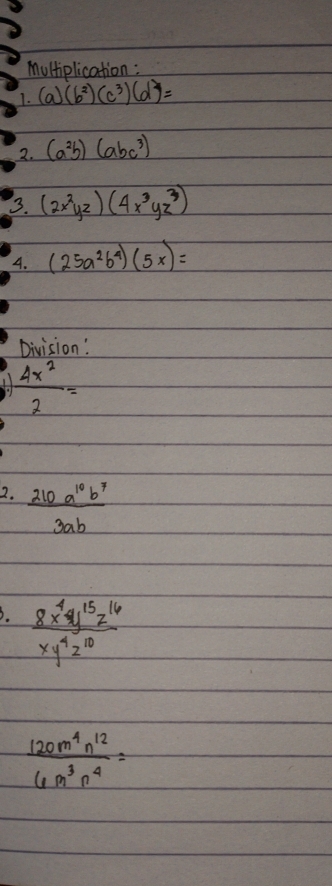 Multiplication:
1. (a)(b²)(c³)(d⁴)=
2. (a²b) (abc³)
3. (2x²yz)(4x³yz³)
4. (25a²b⁴)(5x)=
Division:
1.) 4x²
2 =
2. 210 a¹⁰b⁷
3ab
3. 8x⁴y¹⁵z¹⁶
xy⁴z¹⁰
120m⁴n¹²
6m³n⁴ =